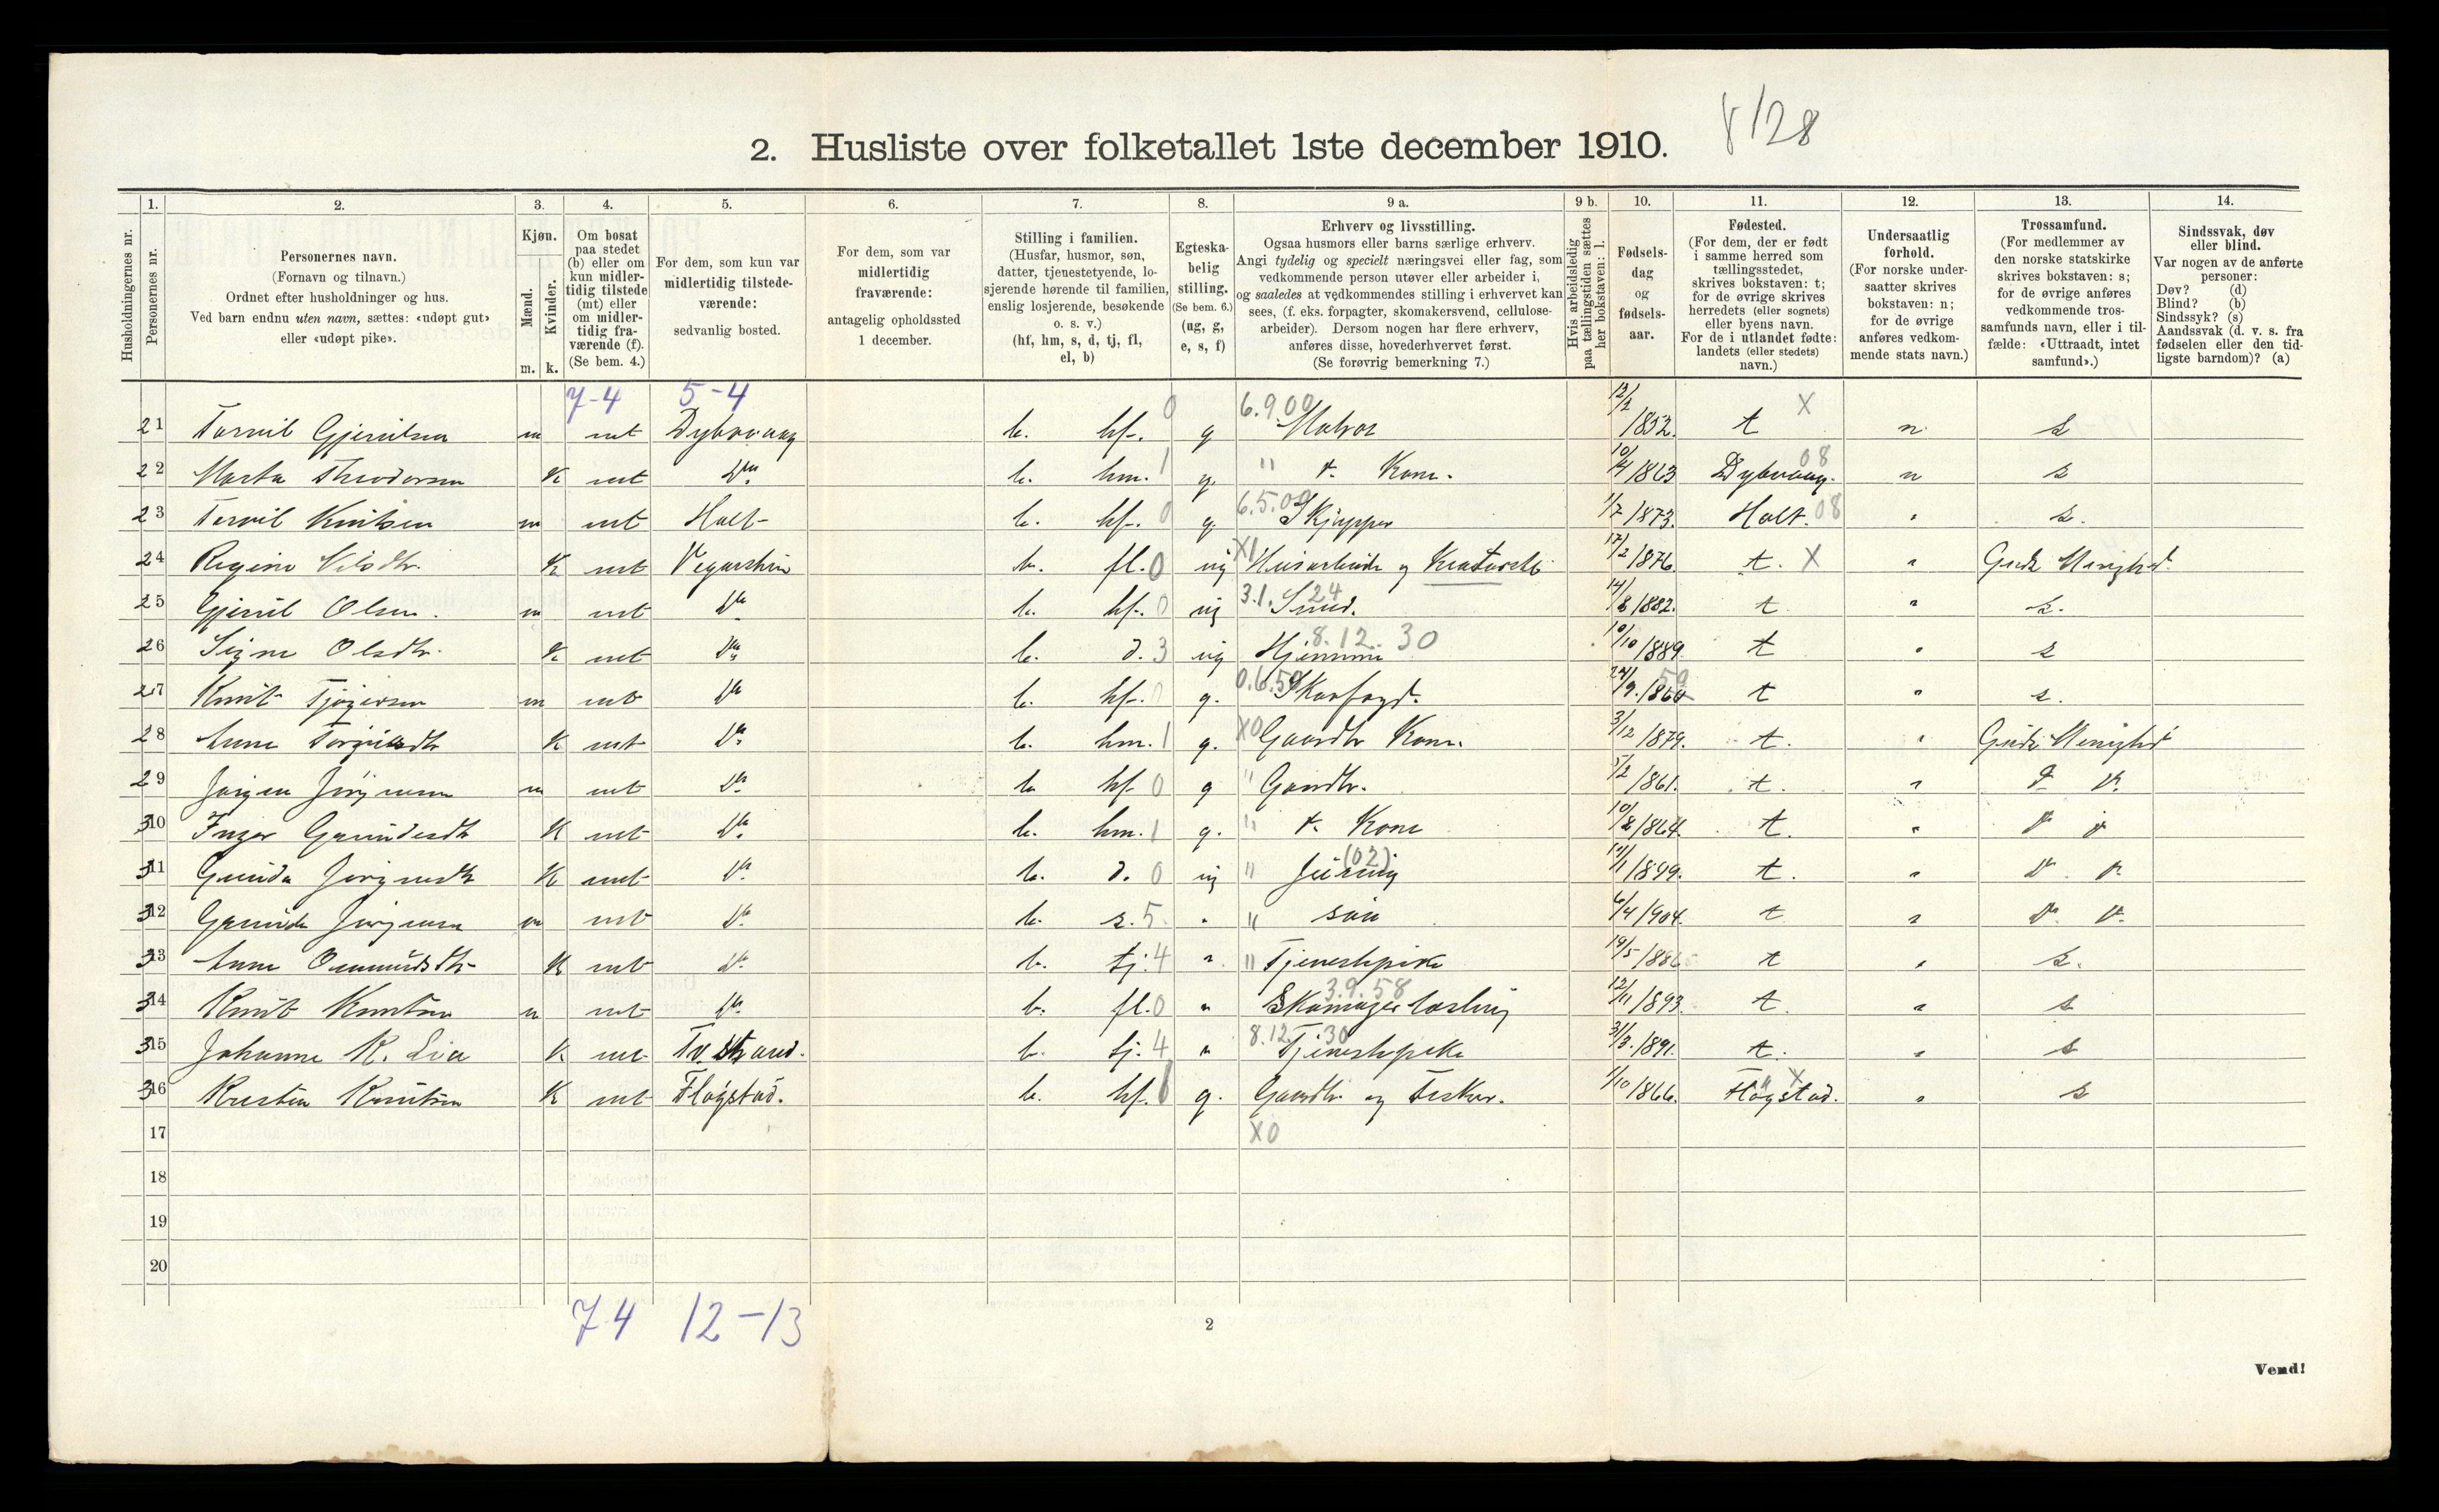 8/128
2. Husliste over folketallet 1ste december 1910.
Husholdningernes nr.
1. 2. 3. 4. 5. 6. 7. 8. 9 a. 9 b. 10. 11. 12. 13. 14.
Personernes nr.
Personernes navn.
(Fornavn og tilnavn.)
Ordnet efter husholdninger og hus.
Ved barn endnu uten navn, sættes: «udøpt gut»
eller «udøpt pike».
Kjøn.
Mænd.
Kvinder.
m. k.
Om bosat
paa stedet
(b) eller om
kun midler-
tidig tilstede
(mt) eller
om midler-
tidig fra-
værende (f).
(Se bem. 4.)
For dem, som kun var
midlertidig tilstede-
værende:
sedvanlig bosted.
For dem, som var
midlertidig
fraværende:
antagelig opholdssted
1 december.
Stilling i familien.
(Husfar, husmor, søn,
datter, tjenestetyende, lo-
sjerende hørende til familien,
enslig losjerende, besøkende
o. s. v.)
(hf, hm, s, d, tj, fl,
el, b)
Egteska-
belig
stilling.
(Se bem. 6.)
(ug, g,
e, s, f)
Erhverv og livsstilling.
Ogsaa husmors eller barns særlige erhverv.
Angi tydelig og specielt næringsvei eller fag, som
vedkommende person utøver eller arbeider i,
og saaledes at vedkommendes stilling i erhvervet kan
sees, (f. eks. forpagter, skomakersvend, cellulose-
arbeider). Dersom nogen har flere erhverv,
anføres disse, hovederhvervet først.
(Se forøvrig bemerkning 7.)
Hvis arbeidsledig
paa tællingstiden sættes
her bokstaven: l.
Fødsels-
dag
og
fødsels-
aar.
Fødested.
(For dem, der er født
i samme herred som
tællingsstedet,
skrives bokstaven: t;
for de øvrige skrives
herredets (eller sognets)
eller byens navn.
For de i utlandet fødte:
landets (eller stedets)
navn.)
Undersaatlig
forhold.
(For norske under-
saatter skrives
bokstaven: n;
for de øvrige
anføres vedkom-
mende stats navn.)
Trossamfund.
(For medlemmer av
den norske statskirke
skrives bokstaven: s;
for de øvrige anføres
vedkommende tros-
samfunds navn, eller i til-
fælde: «Uttraadt, intet
samfund».)
Sindssvak, døv
eller blind.
Var nogen av de anførte
personer:
Døv? (d)
Blind? (b)
Sindssyk? (s)
Aandssvak (d. v. s. fra
fødselen eller den tid-
ligste barndom)? (a)
7-4 5-4
21 m mt Dybvaag b. hf. 0 g 6.9.00 12/2 1852. t X n s
22 K mt Do b. hm. 1 g. " Kone. 10/4 1863 Dybvaag. 08 n s
23 Knutsen m mt Holt b. hf. 0 g. 6.5.00 Skjepper 1/7 1873. Holt. 08 " s.
24 K mt Vegarshei b. fl. 0 ug X1 17/2 1876. t. X " Guds Menighed
25 Olsen. m mt Do b. hf. 0 ug 3.1.24 Smed. 14/8 1882. t " s.
26 Signe Olsdtr. K mt Do b. d. 3 ug 8.12.30 Hjemme 10/10 1889. t " s
27 Knut m mt Do b. hf. 0 g. 0.6.50 Skovfogd. t " s.
28 Anne K mt Do b. hm. 1 g. X0 Gaardbr Kone. 3/12 1879. t. " Guds Menighed
29 Jørgen Jørgensen m mt Do b. hf 0 g " Gaardbr. 5/2 1861. t. "
310 Inger K mt Do b. hm. 1 g. " Kone 10/8 1864. t. "
311 K mt Do b. d. 0 ug " (02) 1899. t. "
312 Jørgensen m mt Do b. s. 5 " " søn 6/4 1904. t "
313 Anne K mt Do b. tj. 4 " " Tjenestepike 19/5 1886 t " s.
314 Knut Knutsen m mt Do b. fl. 0 " 3.9.58 Skomager 12/11 1893. t. " s
315 Johanne K. Lia K mt Tv.strand. b. tj. 4 " 8.12.30 Tjenestepike 31/3 1891. t. " s
316 Knutsen K mt Fløystad. b. hf. g. Gaardbr og Fisker. 1/10 1866. Fløystad. X " s
17 X0
18
19
20
74 12-13
2
Vend!